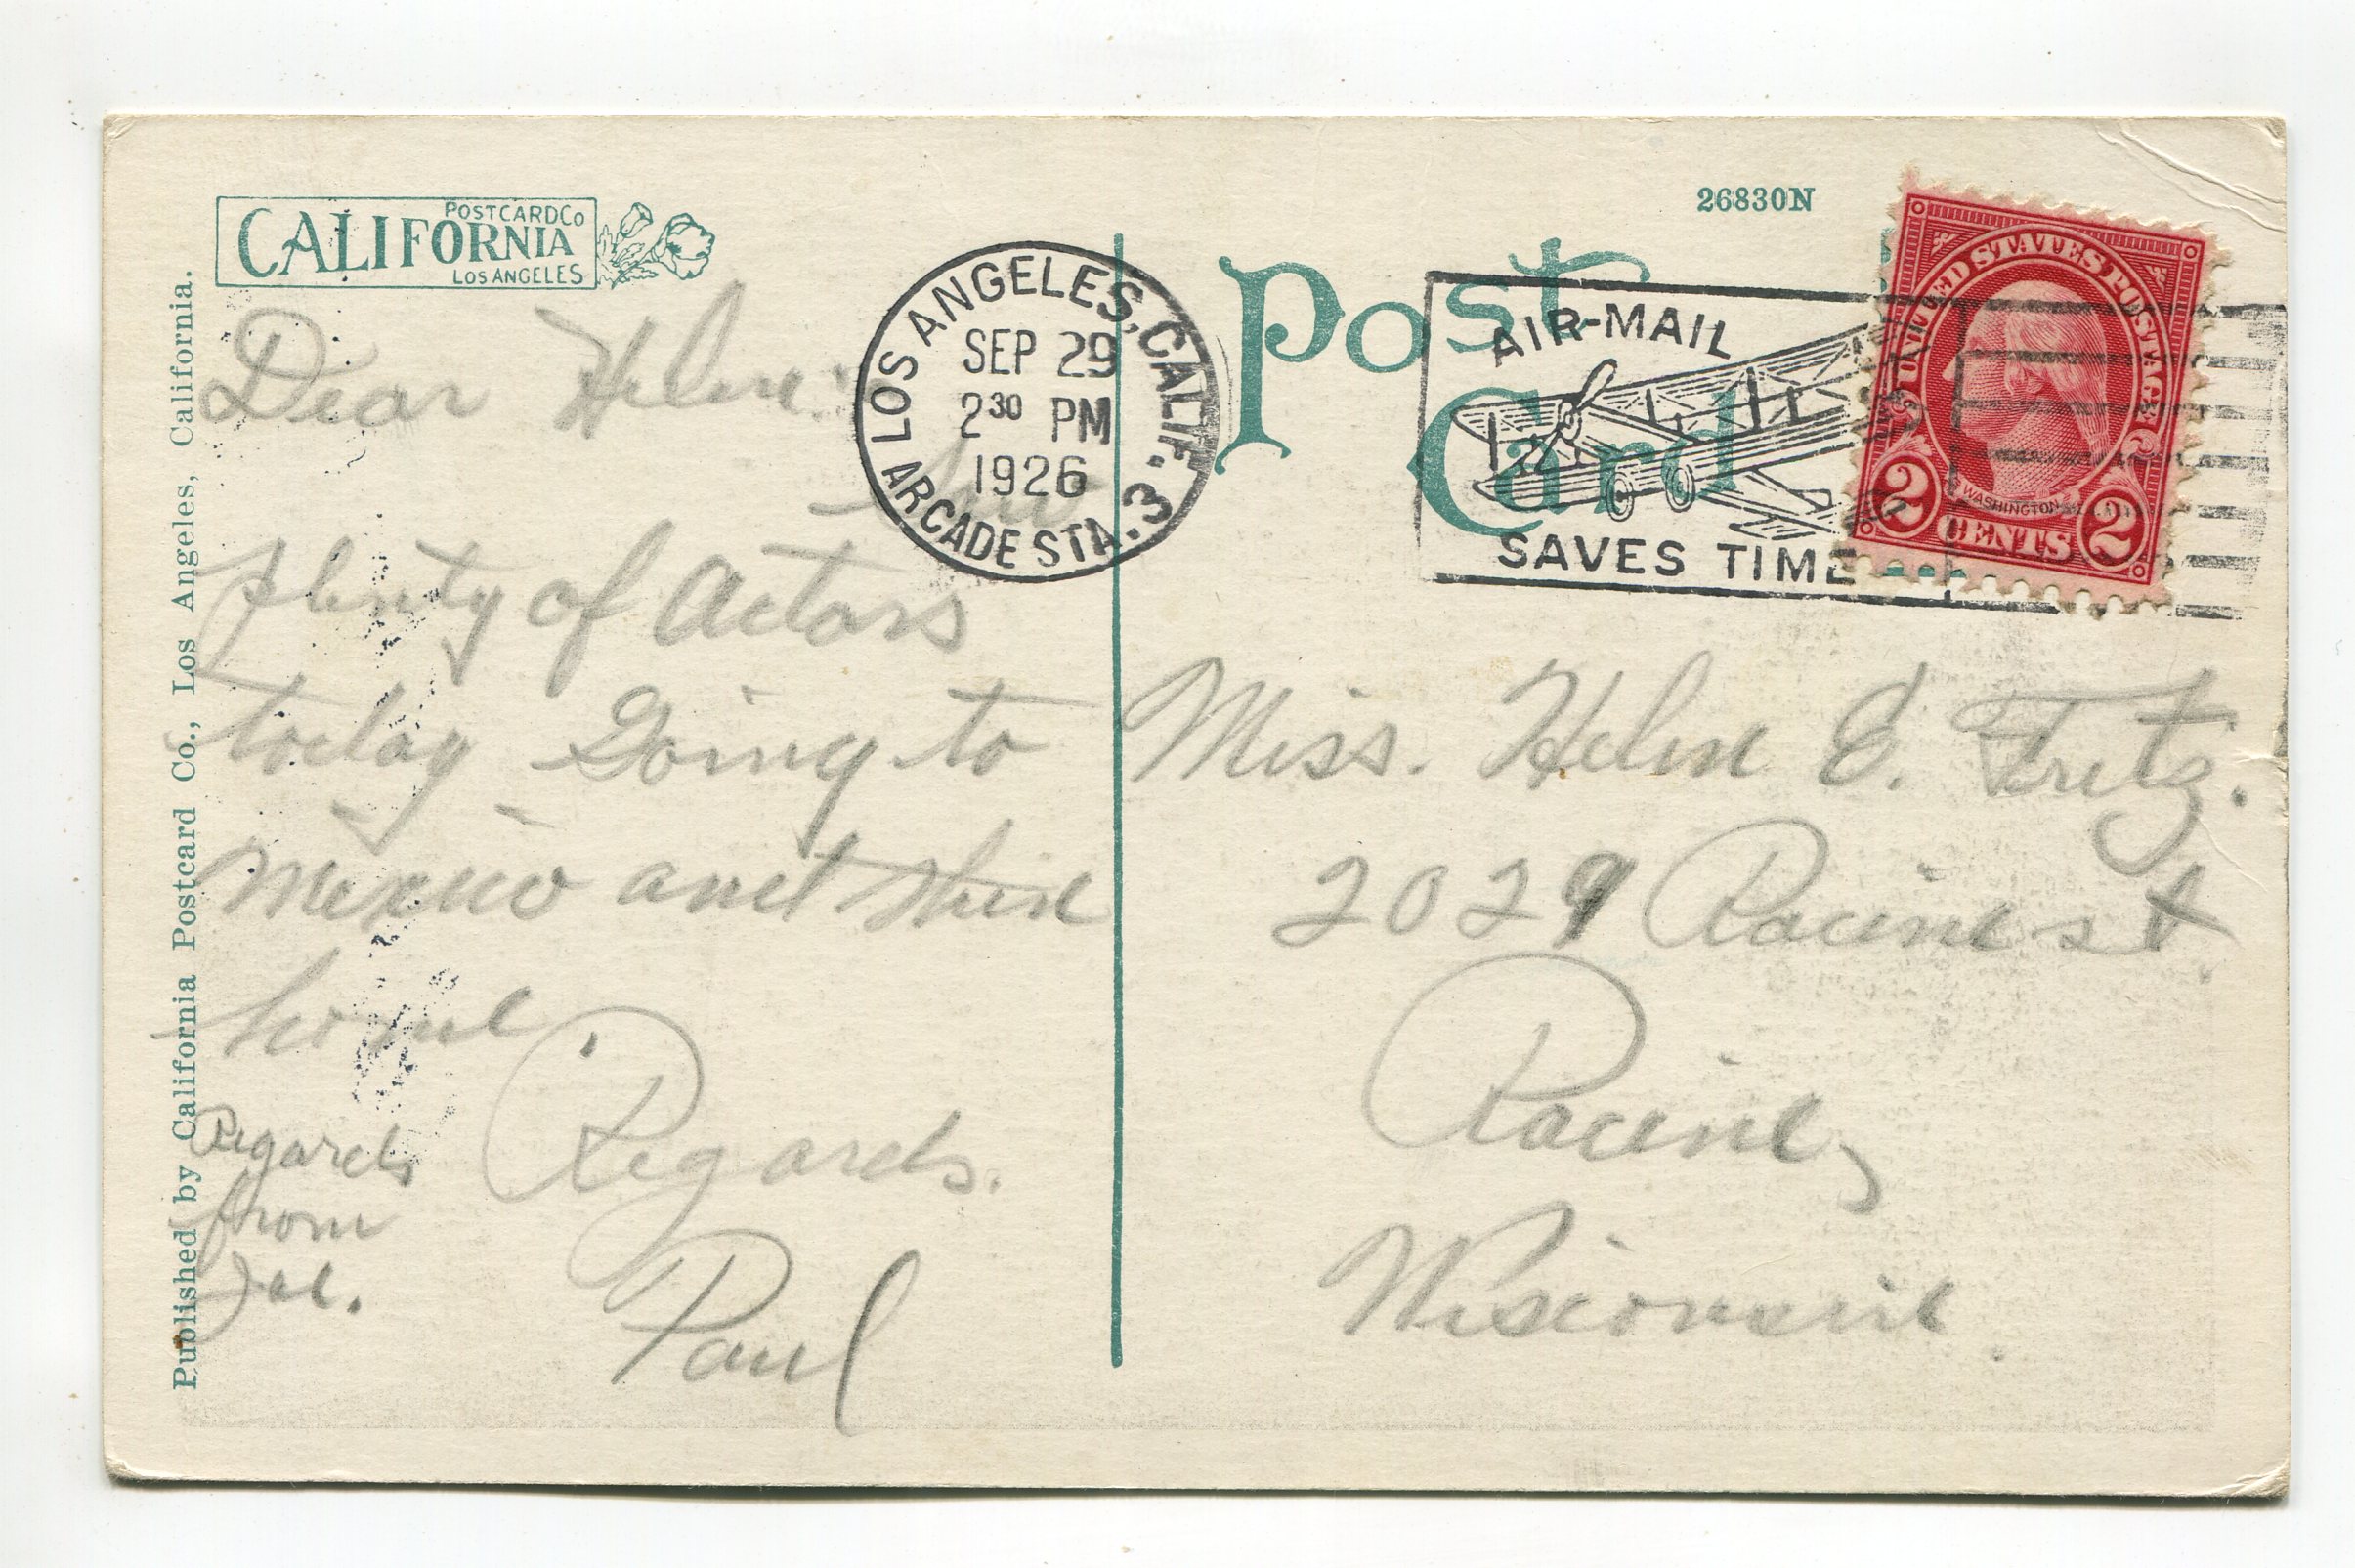 POSTCARD Co
CALIFORNIA
LOS ANGELES
Published by California Postcard Co., Los Angeles, California.
26830N
Post
Card
LOS ANGELES, CALIF.
SEP 29
2 30 PM
1926
ARCADE STA. 3
AIR-MAIL
SAVES TIME
UNITED STATES POSTAGE
WASHINGTON
2 CENTS 2
Dear Helen:
Saw
plenty of Actors
today Going to
Mexico and then
home
Regards.
Paul
Regards
from
Miss. Helen E. Fritz.
2029 Racine st.
Racine,
Wisconsin.